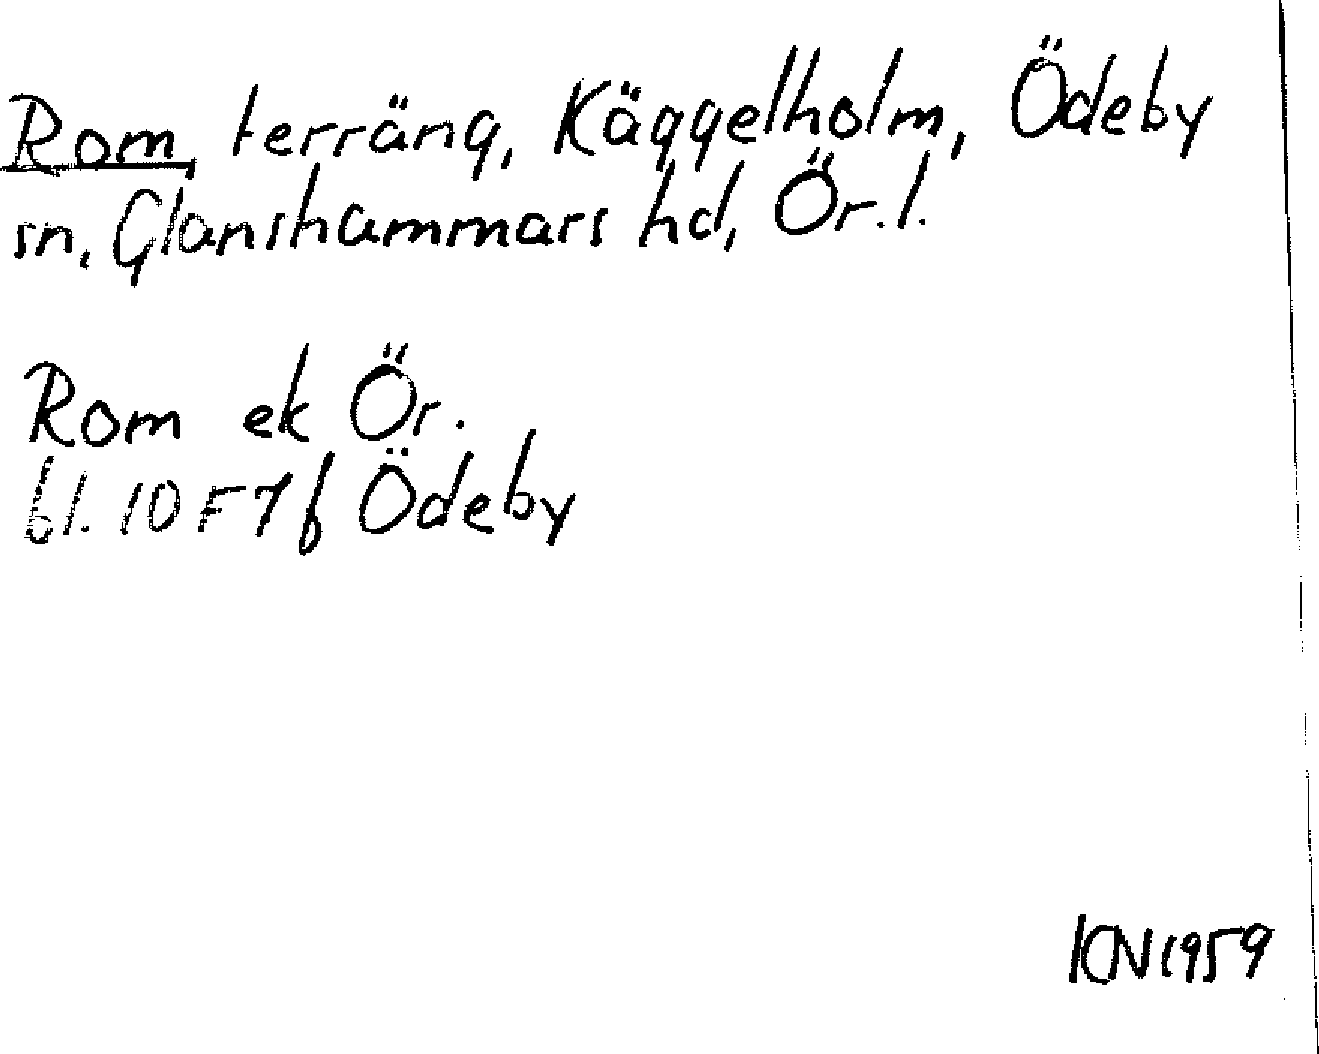 Rom, terräng, Käggelholm, Ödeby
sn, Glanshammars hd, Ör.l.
Rom ek Ör.
bl. 10 F 7 f Ödeby
KN 1959